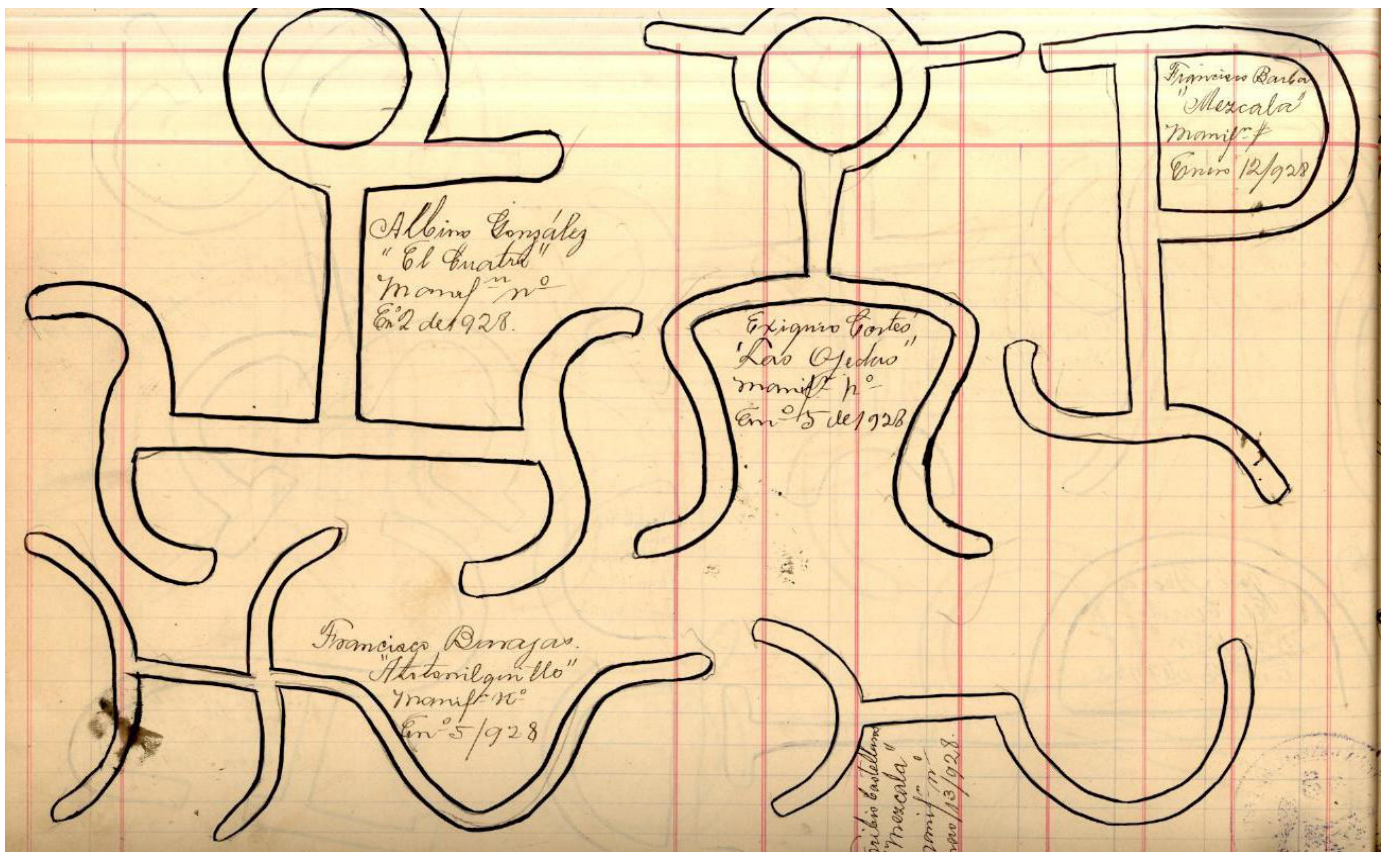 Albino González
"El Cuatro"
Manifⁿ nº
Enº 2 de 1928.
Exiquio Cortés
"Las Ojedas"
Manifⁿ nº
Enº 5 de 1928
Francisco Barba
"Mezcala"
Manifⁿ
Enero 12/928
Francisco Barajas.
"Atotonilquillo"
Manifⁿ nº
Enº 5/928
Castellanos
"Mezcala"
nº
13/928.